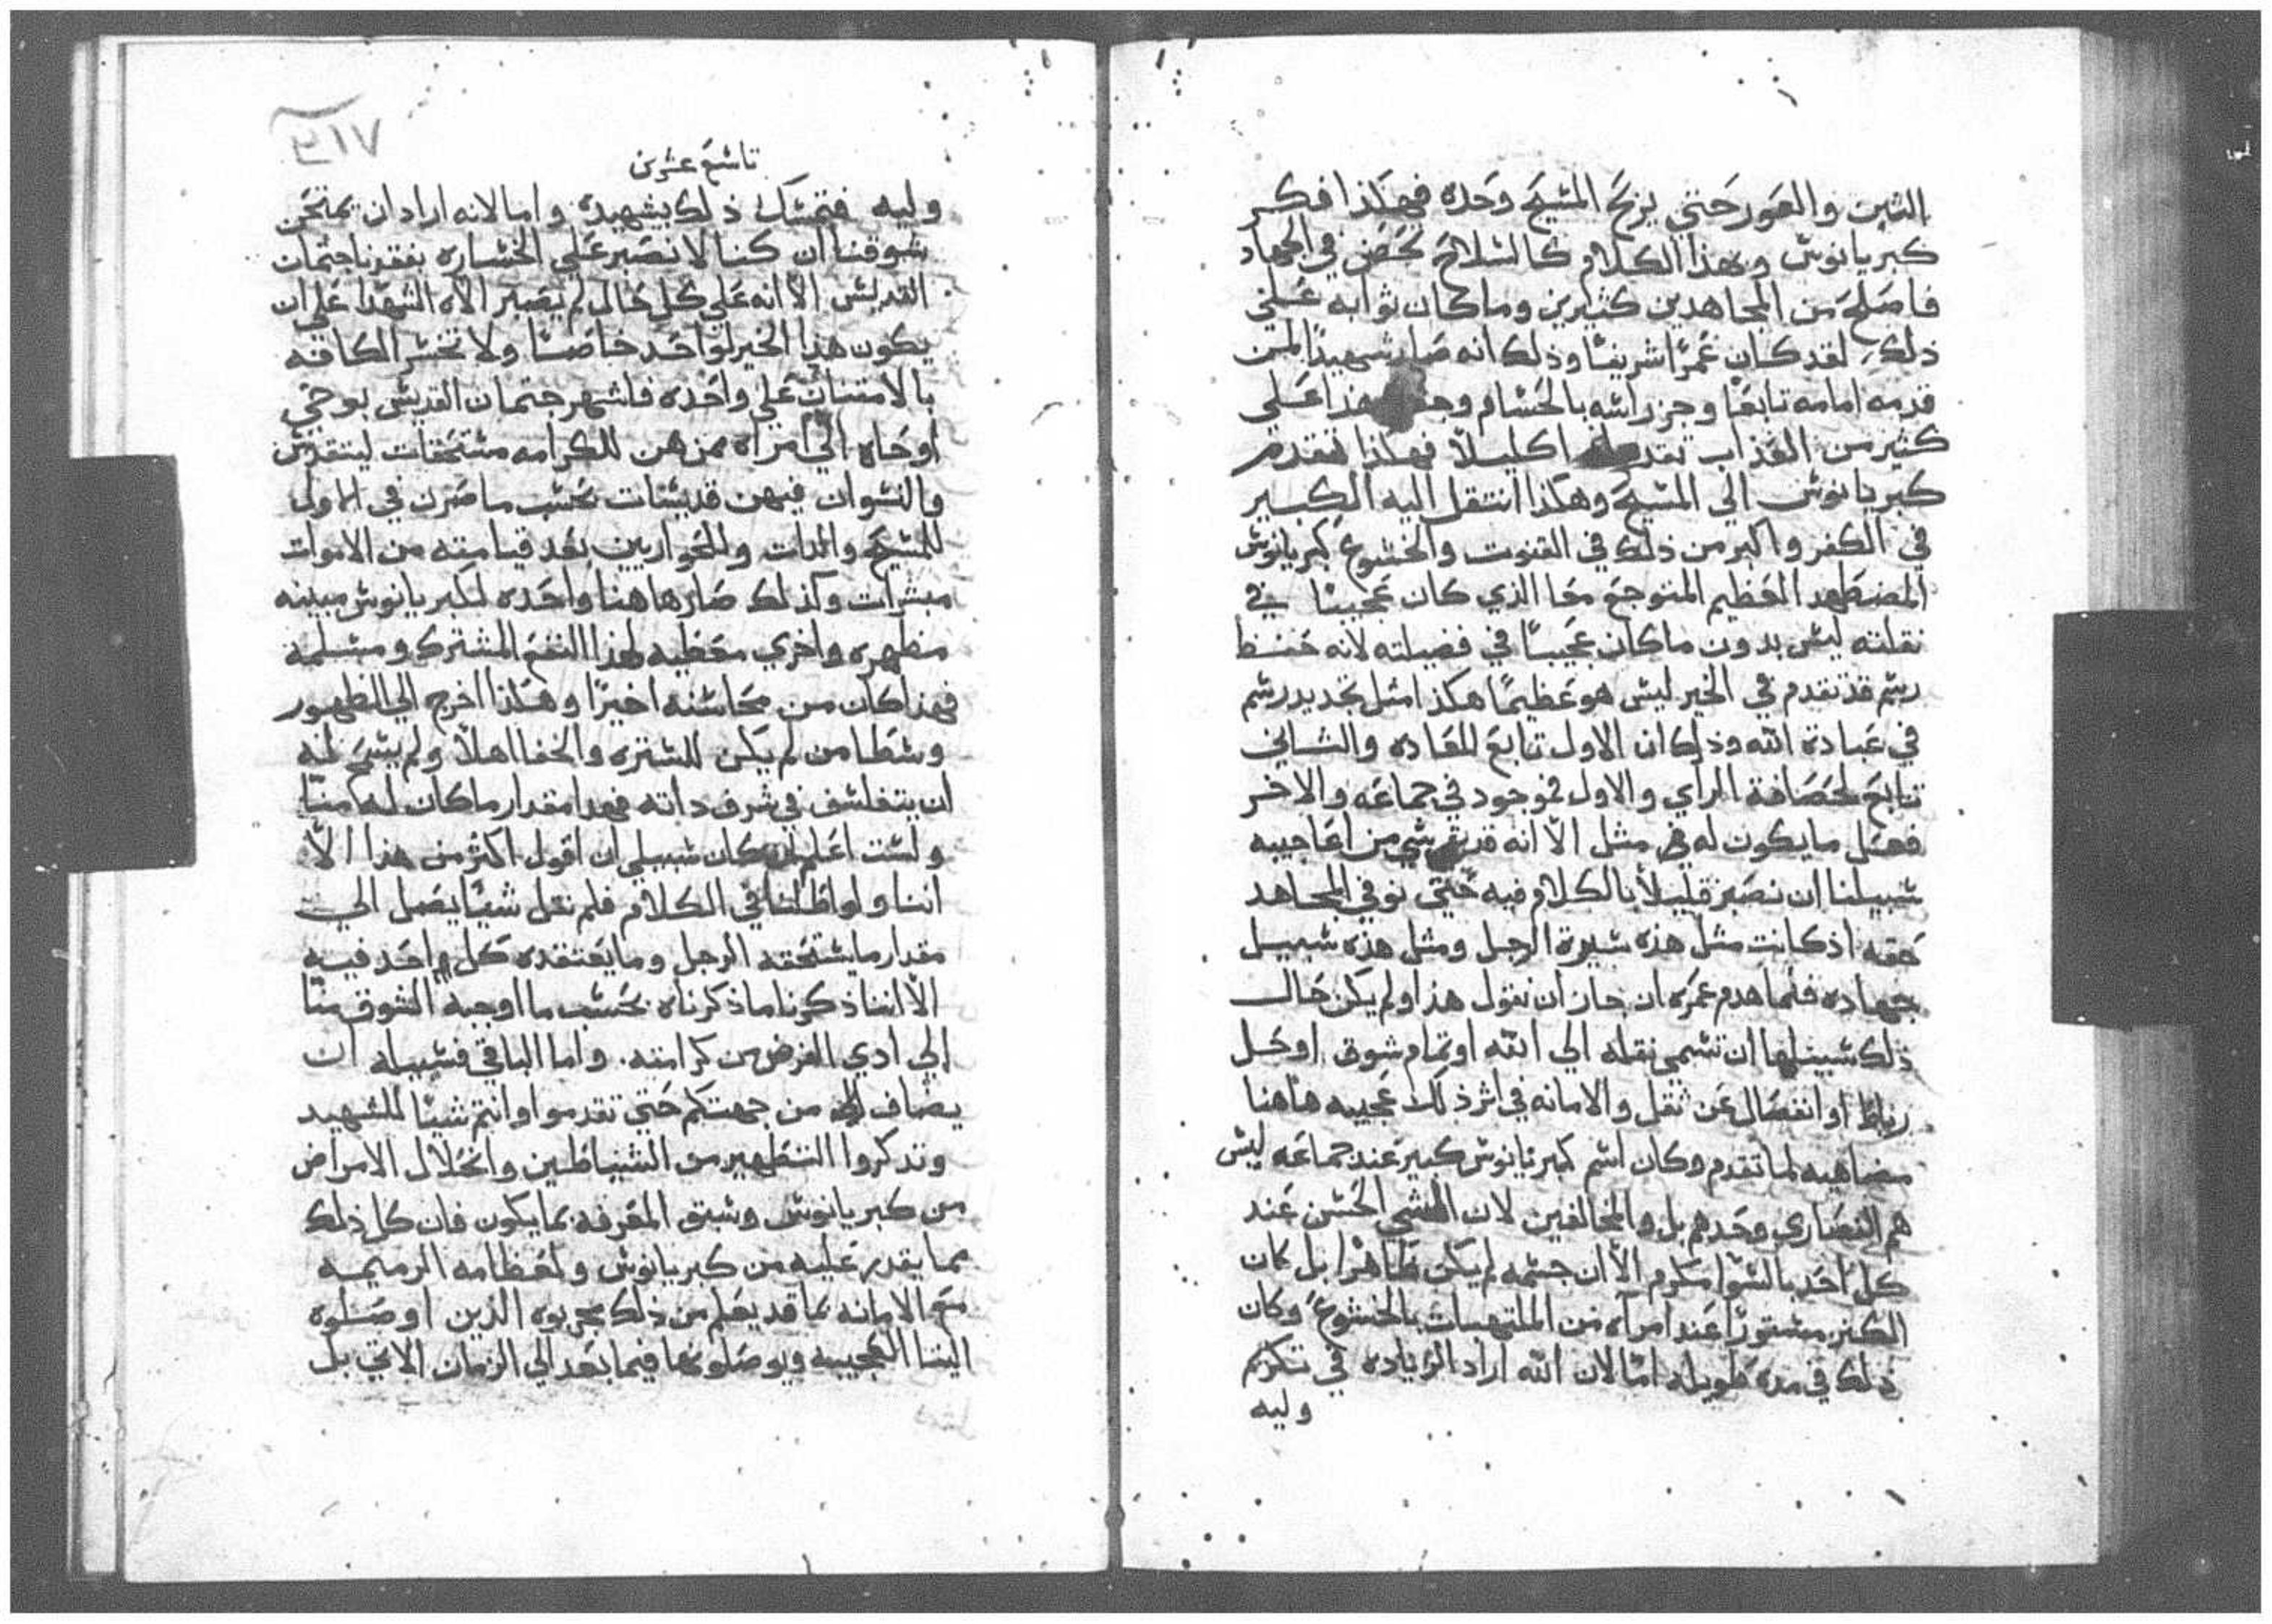 البنين والعور حتي يربح المسيح وحده فهكذا فكر
كبريانوس وبهذا الكلام كالسلاح تحضن في الجهاد
فاصلح من المجاهدين كثيرين وما كان ثوابه علي
ذلك لقد كان عمرًا شريفًا وذلك انه صار شهيدًا لمن
قدمه امامه تابعًا وجز راسه بالحسام هذا علي
كثير من العذاب تقدم اكليلًا فهكذا تقدم
كبريانوس الي المسيح وهكذا انتقل اليه الكبير
في الكفر واكبر من ذلك في القنوت والخشوع كبريانوس
المضطهد العظيم المتوجع معا الذي كان عجيبًا في
نقلته ليس بدون ما كان عجيبًا في فضيلته لانه حفظ
رسم قد تقدم في الخير ليس هو عظيمًا هكذا مثل تجديد رسم
في عبادة الله وذلك ان الاول تابع للعاده والثاني
تابع لحصافة الراي والاول موجود في جماعه والاخر
فقل ما يكون له مثل الا انه قد شي من اعاجيبه
سبيلنا ان نصبر قليلًا بالكلام فيه حتي نوفي المجاهد
حقه اذ كانت مثل هذه سيرة الرجل ومثل هذه سبيل
جهاده فلما هدم عمره ان جاز ان نقول هذا ولم يكن حال
ذلك سبيلها ان تسمى نقله الي الله او تمام شوق او حل
رباط او انفصال عن ثقل والامانه في اثر ذلك عجيبه هاهنا
مضاهيه لما تقدم وكان اسم كبريانوس كبير عند جماعه ليس
هم النصاري وحدهم بل والمخالفين لان الشي الحسن عند
كل احد بالسوا مكرم الا ان جسمه لم يكن ظاهرًا بل كان
الكنز مستورًا عند امرآه من الملتهبات بالخشوع وكان
ذلك في مدة طويله امّا لان الله اراد الزياده في تكرم
وليه
٤١٧
تاسع عشرين
وليه فتمسك ذلك بشهيده واما لانه اراد ان يمتحن
شوقنا ان كنا لا نصبر علي الخساره بفقدنا جثمان
القديس الا انه علي كل حال لم يصبر الاه الشهدا علي ان
يكون هذا الخير لواحد خاصًا ولا تخسر الكافه
بالامتنان علي واحده فاشهر جثمان القديس بوحي
اوحاه الي امراه ممن هن للكرامه مستحقات ليتقدس
والنسوان فيهن قديسات بحسب ما صرن في الاول
للمسيح والدات وللحواريين بعد قيامته من الاموات
مبشرات وكذلك صار هاهنا واحده لكبريانوس مبينه
مظهره واخري معطيه لهذا النفع المشترك ومسلمه
فهذا كان من محاسنه اخيرًا وهكذا اخرج الي الظهور
وسطا من لم يكن للستره والخفا اهلًا ولم يسمح له
ان يتفلسف في شرف داته فهدا مقدار ما كان له منّا
ولست اعلم ان كان سبيلي ان اقول اكثر من هذا الّا
اننا ولو اطلنا في الكلام فلم نقل شيًا يصل الي
مقدار ما يستحقه الرجل وما يعتقده كل واحد فيه
الا اننا ذكرنا ما ذكرناه بحسب ما اوجبه الشوق منّا
الي ادي الفرض من كرامته. واما الباقي فسبيله ان
يضاف من جهتكم حتي تقدموا وانتم شيئًا للشهيد
وتدكروا التطهير من الشياطين وانحلال الامراض
من كبريانوس وسبق المعرفه بما يكون فان كل ذلك
مما يقدر عليه من كبريانوس ولعظامه الرميمه
مع الامانه بما قد يعلم من ذلك مجربوه الذين اوصلوه
الينا العجيبه ويوصلونها فيما بعد الي الزمان الاتي بل